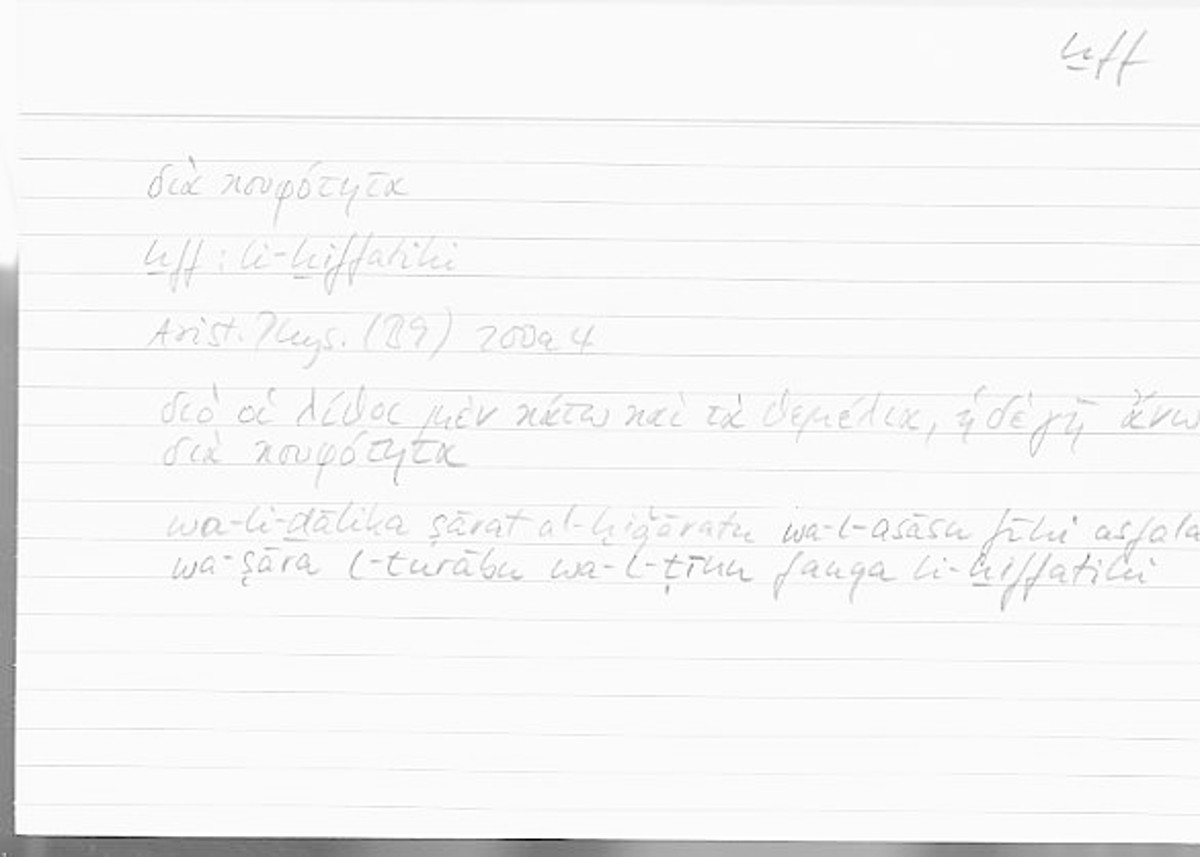 ḫff
διὰ κουφότητα
ḫff : li-ḫiffatihi
Arist. Phys. (B9) 200a 4
διὸ οἱ λίθοι μὲν κάτω καὶ τὰ θεμέλια, ἡ δὲ γῆ ἄνω
διὰ κουφότητα
wa-li-ḏālika ṣārat al-ḥiǧāratu wa-l-asāsu fīhi asfala
wa-ṣāra l-turābu wa-l-ṭīnu fauqa li-ḫiffatihi